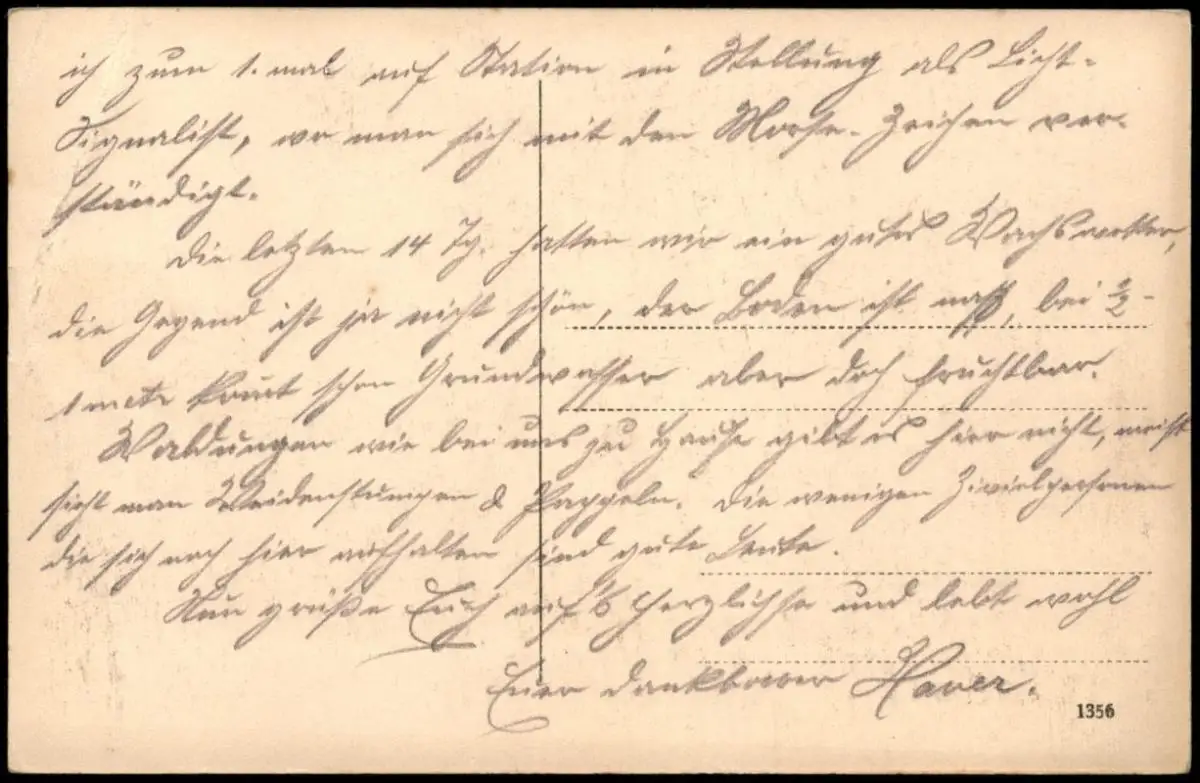 ich zum 1. mal auf Station in Stellung als Licht-
Signalist, wo man sich mit den Morse-Zeichen ver-
ständigt.
Die letzten 14 Tg. hatten wir ein gutes Wachswetter,
die Gegend ist ja nicht schön, der Boden ist naß, bei ½-
1 metr komt schon Grundwasser aber doch fruchtbar.
Waldungen wie bei uns zu Hause gibt es hier nicht, meist
sieht man Weidenstumpen & Pappeln. Die wenigen Zivielpersonen
die sich noch hier aufhalten sind gute Leute.
Nun grüße Euch auf's herzlichste und lebt wohl
Euer dankbarer Xaver.
1356